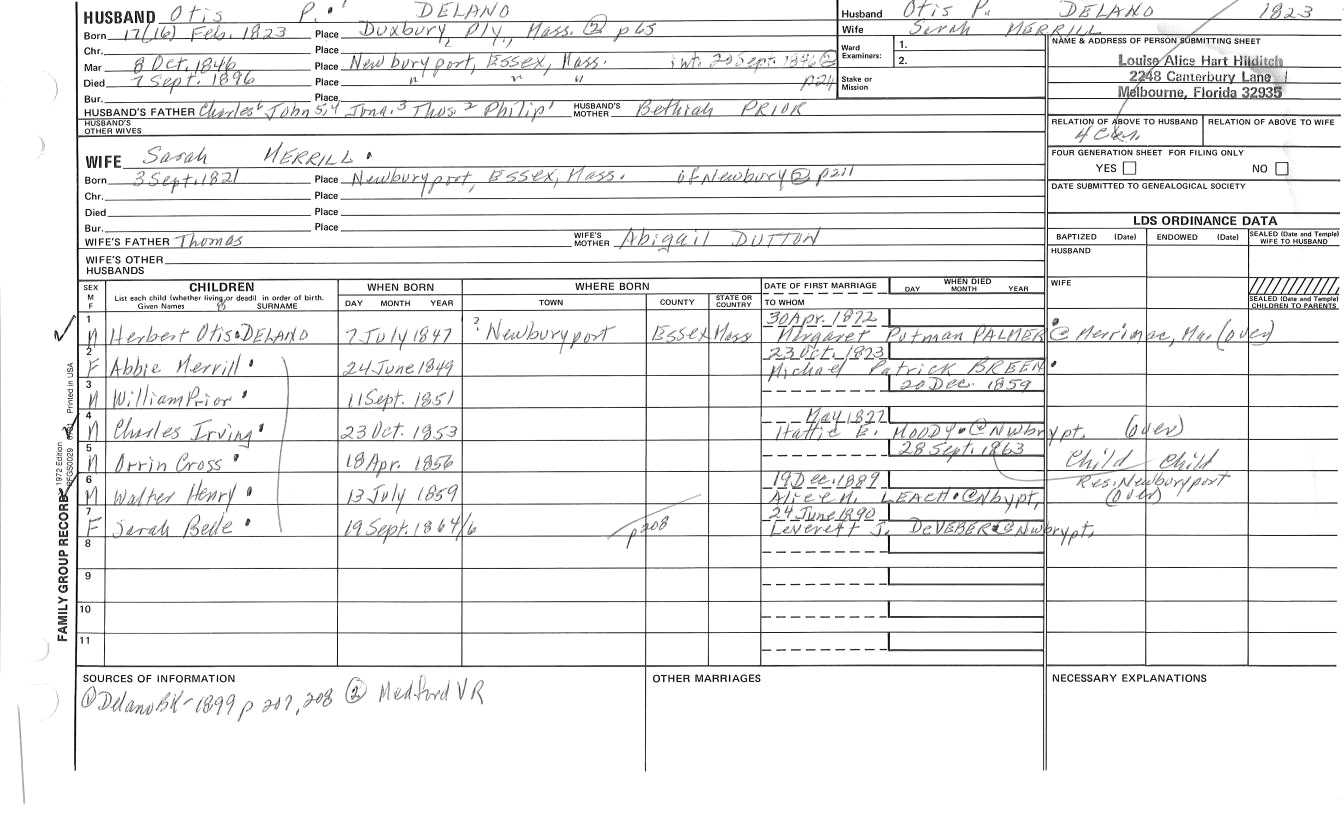 HUSBAND Otis P. DELANO
Born 17(16) Feb. 1823 Place Duxbury, Ply., Mass. ② p65
Chr. Place
Mar 8 Oct. 1846 Place Newburyport, Essex, Mass. int. 20 Sept. 1846 ②
Died 7 Sept. 1896 Place " " " p24
Bur. Place
HUSBAND'S FATHER Charles⁶ John 5,4 Jona.³ Thos² Philip¹ HUSBAND'S MOTHER Bethiah PRIOR
HUSBAND'S OTHER WIVES
Husband Otis P. DELANO 1823
Wife Sarah MERRILL
Ward Examiners: 1.
2.
Stake or Mission
NAME & ADDRESS OF PERSON SUBMITTING SHEET
Louise Alice Hart Hilditch
2248 Canterbury Lane
Melbourne, Florida 32935
RELATION OF ABOVE TO HUSBAND RELATION OF ABOVE TO WIFE
FOUR GENERATION SHEET FOR FILING ONLY
YES NO
DATE SUBMITTED TO GENEALOGICAL SOCIETY
WIFE Sarah MERRILL
Born 3 Sept. 1821 Place Newburyport, Essex, Mass. of Newbury ② p211
Chr. Place
Died Place
Bur. Place
WIFE'S FATHER Thomas WIFE'S MOTHER Abigail DUTTON
WIFE'S OTHER HUSBANDS
LDS ORDINANCE DATA
BAPTIZED (Date) ENDOWED (Date) SEALED (Date and Temple) WIFE TO HUSBAND
HUSBAND
WIFE
SEALED (Date and Temple) CHILDREN TO PARENTS
SEX M F CHILDREN WHEN BORN WHERE BORN DATE OF FIRST MARRIAGE WHEN DIED
List each child (whether living or dead) in order of birth. DAY MONTH YEAR
Given Names SURNAME DAY MONTH YEAR TOWN COUNTY STATE OR COUNTRY TO WHOM
1 30 Apr. 1872
M Herbert Otis DELANO 7 July 1847 ? Newburyport Essex Mass Margaret Putman PALMER @ Merrimac, Ma. (over)
2 23 Oct. 1873
F Abbie Merrill 24 June 1849 Michael Patrick BREEN
3 20 Dec. 1859
M William Prior 11 Sept. 1851
4 May 1877
M Charles Irving 23 Oct. 1853 Hattie E. MOODY @ Nwbrypt. (over)
5 28 Sept. 1863
M Orrin Cross 18 Apr. 1856 Child Child
6 19 Dec. 1889 Res. Newburyport
M Walter Henry 13 July 1859 Alice M. LEACH @ Nbypt, (over)
7 24 June 1890
F Sarah Belle 19 Sept. 1864/6 p208 Leverett J. DeVEBER @ Nwbrypt,
8
9
10
11
FAMILY GROUP RECORD 1972 Edition Printed in USA
SOURCES OF INFORMATION
① Delano BK - 1899 p 207, 208 ② Medford VR
OTHER MARRIAGES
NECESSARY EXPLANATIONS